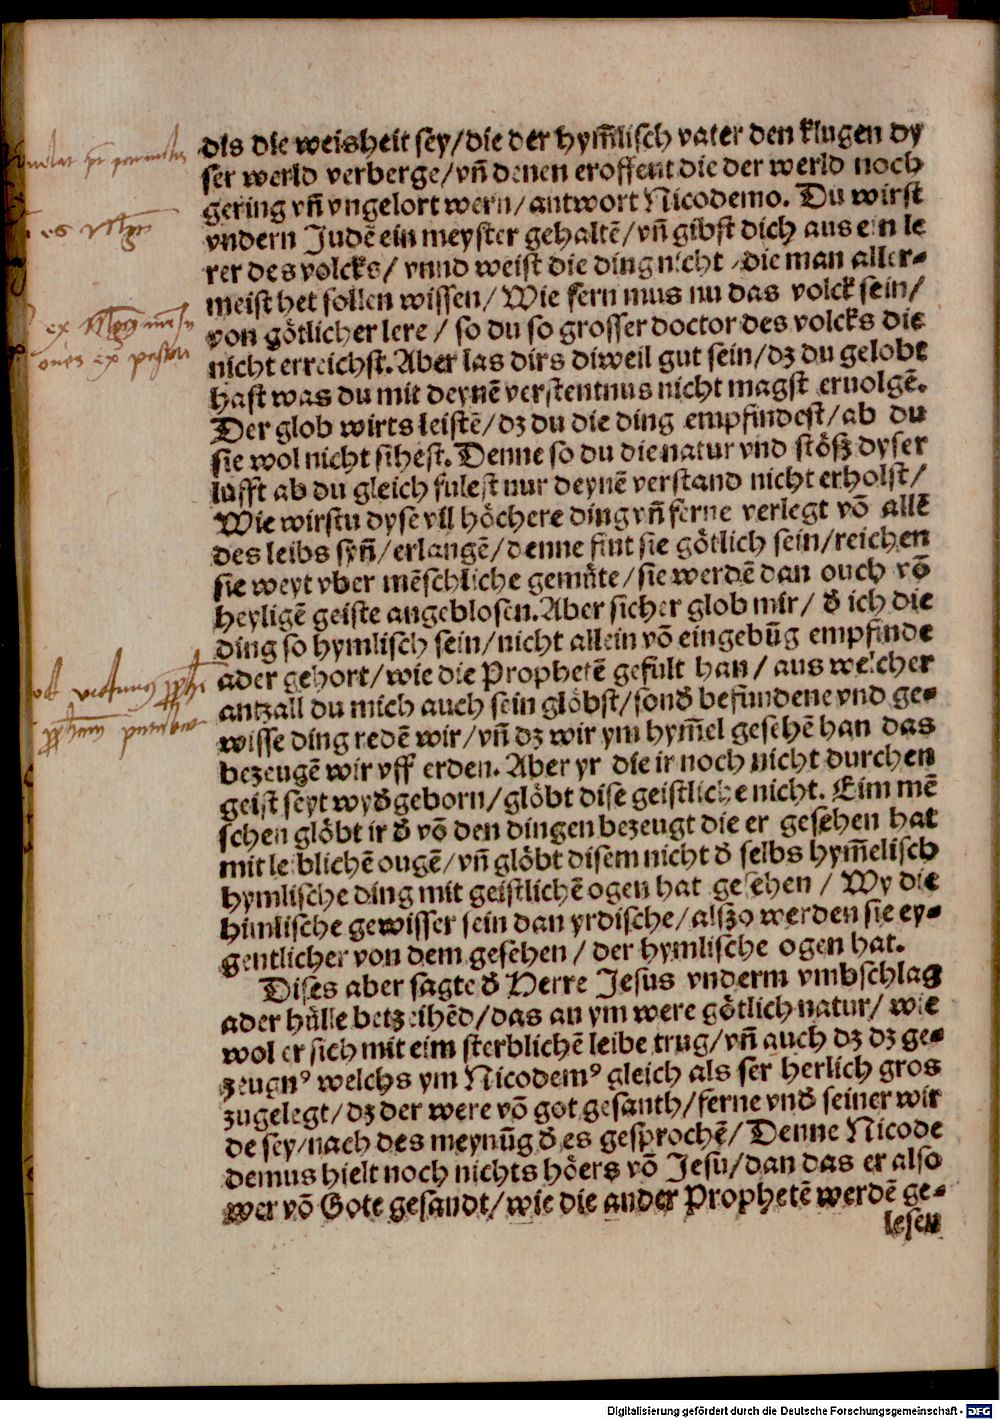 dis die weisheit sey/die der hym̃lisch vater den klugen dy
ser werld verberge/vñ denen eroffent die der werld noch
gering vñ vngelort wern/antwort Nicodemo. Du wirst
vndern Judē ein meyster gehaltē/vñ gibst dich aus ein le
rer des volcks/ vnnd weist die ding nicht /die man aller⸗
meist het sollen wissen/ Wie fern mus nu das volck sein/
von götlicher lere / so du so grosser doctor des volcks die
nicht erreichst. Aber las dirs diweil gut sein/dz du gelobt
hast was du mit deynē verstentnus nicht magst eruolgē.
Der glob wirts leistē/dz du die ding empfindest/ab du
sie wol nicht sihest. Denne so du die natur vnd stösz dyser
lufft ab du gleich fulest nur deynē verstand nicht erholst/
Wie wirstu dyse vil höchere ding vñ ferne verlegt vō allē
des leibs syñ/erlangē/denne sint sie götlich sein/reichen
sie weyt vber mēschliche gemüte/sie werdē dan ouch vō
heyligē geiste angeblosen. Aber sicher glob mir/ d̕ ich die
ding so hymlisch sein/nicht allein vō eingebūg empfinde
ader gehort/wie die Prophetē gefult han/ aus welcher
antzall du mich auch sein glöbst/sond̕ befundene vnd ge⸗
wisse ding redē wir/vñ dz wir ym hym̃el gesehē han das
bezeugē wir vff erden. Aber yr die ir noch nicht durchen
geist seyt wyd̕geborn/glöbt dise geistliche nicht. Eim mē
schen glöbt ir d̕ vō den dingen bezeugt die er gesehen hat
mit leiblichē ougē/vñ glöbt disem nicht d̕ selbs hym̃elisch
hymlische ding mit geistlichē ogen hat gesehen / Wy die
himlische gewisser sein dan yrdische/alszo werden sie ey⸗
gentlicher von dem gesehen / der hymlische ogen hat.
Dises aber sagte d̕ Herre Jesus vnderm vmbschlag
ader hülle betzeihēd/das an ym were götlich natur/ wie
wol er sich mit eim sterblichē leibe trug/vñ auch dz dz ge⸗
zeugnꝰ welchs ym Nicodemꝰ gleich als ser herlich gros
zugelegt/dz der were vō got gesanth/ferne vnd̕ seiner wir
de sey/nach des meynūg d̕ es gesprochē/ Denne Nicode
demus hielt noch nichts höers vō Jesu/dan das er also
wer vō Gote gesandt/wie die ander Prophetē werdē ge⸗
lesen
Digitalisierung gefördert durch die Deutsche Forschungsgemeinschaft - DFG